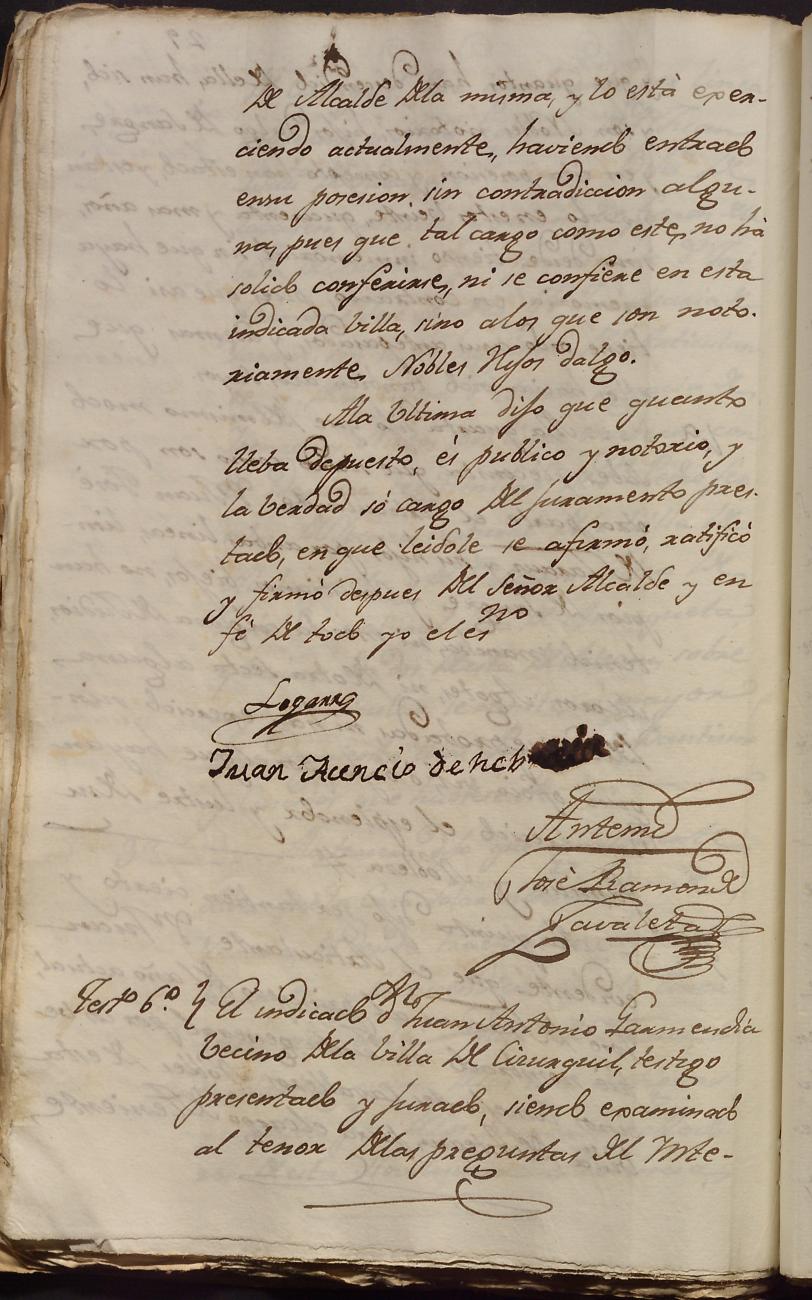 de Alcalde dela misma, y lo está exer-
ciendo actualmente, haviendo entrado
ensu posesion, sin contradiccion algu-
na, pues que tal cargo como este, no há
solido conferirse, ni se confiere en esta
indicada Villa, sino alos que son noto-
riamente Nobles Hijos dalgo.
Ala Ultima dijo que quanto
lleba depuesto, és publico y notorio, y
la berdad só cargo del juramento pres-
tado, en que leidole se afirmó, ratificó
y firmó despues del Señor Alcalde y en
fé de todo yo el esno
Juan Acencio de
Antemi
José Ramon de
Zavaleta
Testo 6o El indicado dn Juan Antonio Garmendia
Vecino dela Villa de Cizurquil, testigo
presentado y jurado, siendo examinado
al tenor delas preguntas del Ynte-